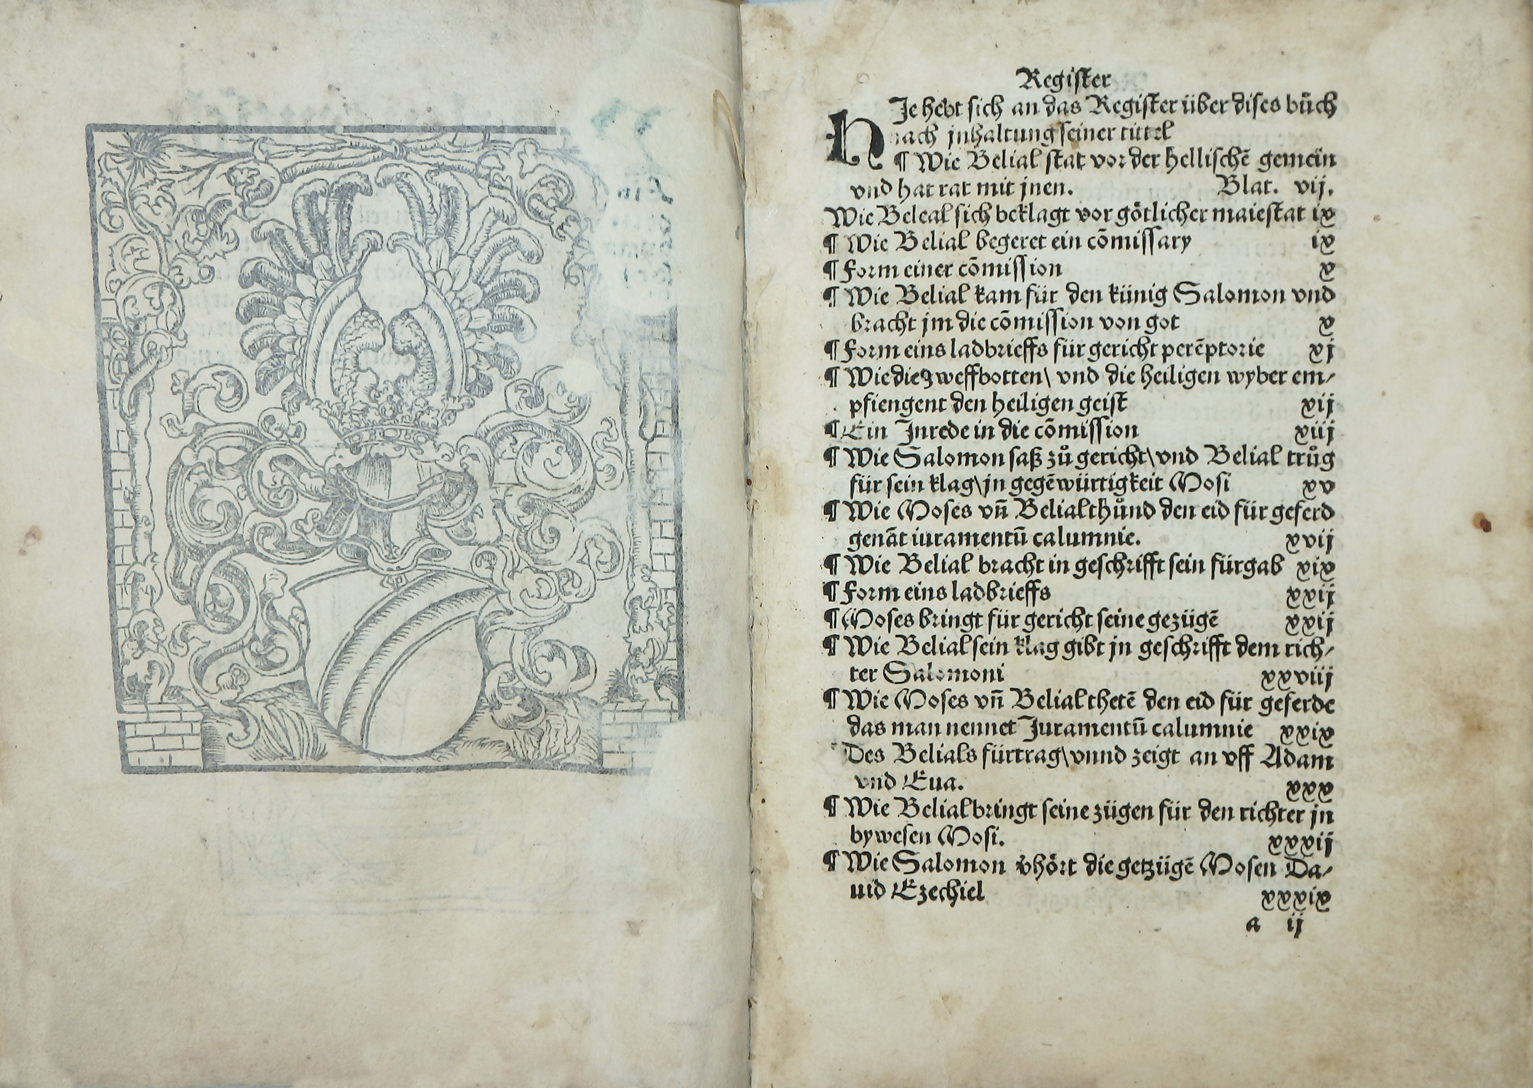 Register
HJe hebt sich an das Register über dises bůch
nach jnhaltung seiner tüttel
¶ Wie Belial stat vor der hellischē gemein
vnd hat rat mit jnen. Blat. vij.
Wie Beleal sich beklagt vor götlicher maiestat ix
¶ Wie Belial begeret ein cōmissary ix
¶ Form einer cōmission x
¶ Wie Belial kam für den künig Salomon vnd
bracht jm die cōmission von got x
¶ Form eins ladbrieffs für gericht perēptorie xj
¶ Wie die zweffbotten\ vnd die heiligen wyber em/
pfiengent den heiligen geist xij
¶ Ein Jnrede in die cōmission xiij
¶ Wie Salomon saß zů gericht\ vnd Belial trůg
für sein klag\ jn gegēwürtigkeit Mosi xv
¶ Wie Moses vn̄ Belial thůnd den eid für geferd
genāt iuramentū calumnie. xvij
¶ Wie Belial bracht in geschrifft sein fürgab xix
¶ Form eins ladbrieffs xxij
¶ Moses bringt für gericht seine gezügē xxij
¶ Wie Belial sein klag gibt jn geschrifft dem rich/
ter Salomoni xxviij
¶ Wie Moses vn̄ Belial thetē den eid für geferde
das man nennet Juramentū calumnie xxix
Des Belials fürtrag\ vnnd zeigt an vff Adam
vnd Eua. xxx
¶ Wie Belial bringt seine zügen für den richter jn
bywesen Mosi. xxxij
¶ Wie Salomon v̓hört die getzügē Mosen Da/
uid Ezechiel xxxix
a ij